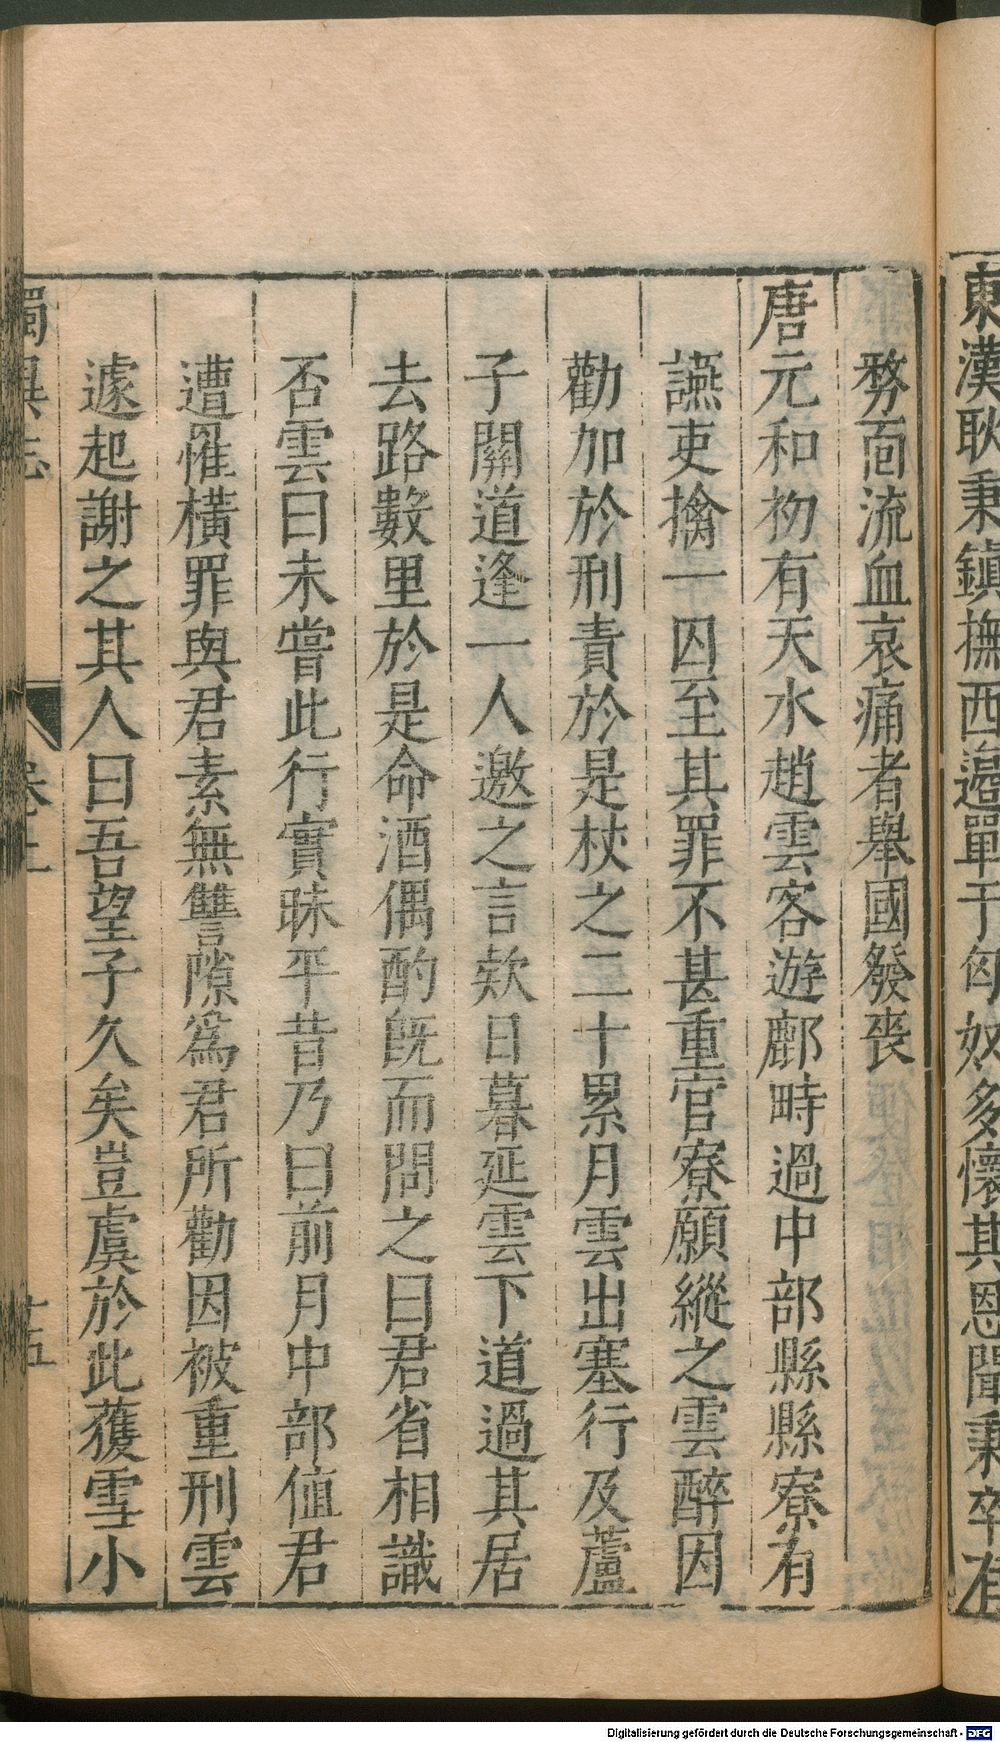 東漢耿秉鎮撫西邉單于匈奴多懷其恩聞秉卒有
務靣流血哀痛者舉國發喪
唐元和初有天水趙雲客遊鄜畤過中部縣縣寮有
讌吏擒一囚至其罪不甚重官寮願縱之雲醉因
勸加於刑責於是杖之二十累月雲出塞行及蘆
子關道逢一人邀之言欵日暮延雲下道過其居
去路數里於是命酒偶酌旣而問之曰君省相識
否雲曰未嘗此行實昧平昔乃曰前月中部值君
遭罹橫罪與君素無讐隙爲君所勸因被重刑雲
遽起謝之其人曰吾望子久矣豈虞於此獲雪小
獨異志
卷上
十五
Digitalisierung gefördert durch die Deutsche Forschungsgemeinschaft - DFG